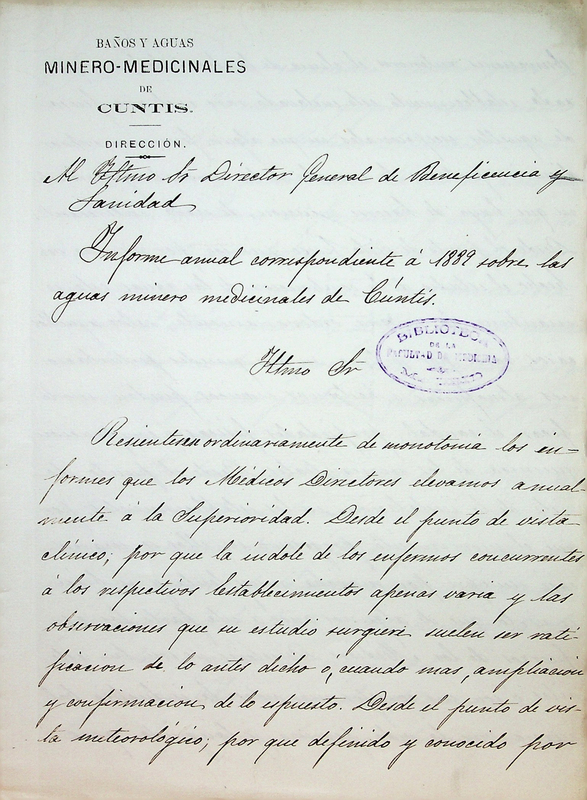 BAÑOS Y AGUAS
MINERO-MEDICINALES
DE
CUNTIS.
DIRECCIÓN.
Al Iltmo Sr Director General de Beneficencia y
Sanidad
Informe anual correspondiente á 1889 sobre las
aguas minero medicinales de Cúntis.
BIBLIOTECA
DE LA
FACULTAD DE MEDICINA
Iltmo Sr
Resientense ordinariamente de monotonia los in-
formes que los Médicos Directores elevamos anual
mente á la Superioridad. Desde el punto de vista
clínico; por que la índole de los enfermos concurrentes
á los respectivos Establecimientos apenas varia y las
observaciones que su estudio surgiere suelen ser rati-
ficacion de lo antes dicho ó, cuando mas, ampliacion
y confirmacion de lo espuesto. Desde el punto de vis-
ta meteorológico; por que definido y conocido por